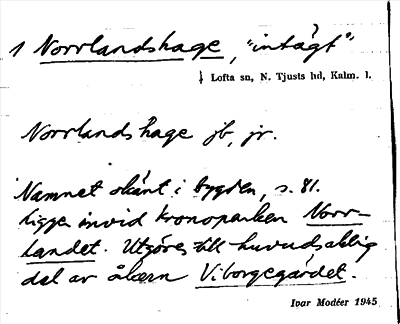 1 Norrlandshage, "intägt"
Lofta sn, N. Tjusts hd, Kalm. l.
Norrlands hage jb, jr.
Namnet okänt i bygden, s. 81.
Ligger invid kronoparken Norr-
landet. Utgöres till huvudsaklig
del av åkern Viborgegärdet.
Ivar Modéer 1945